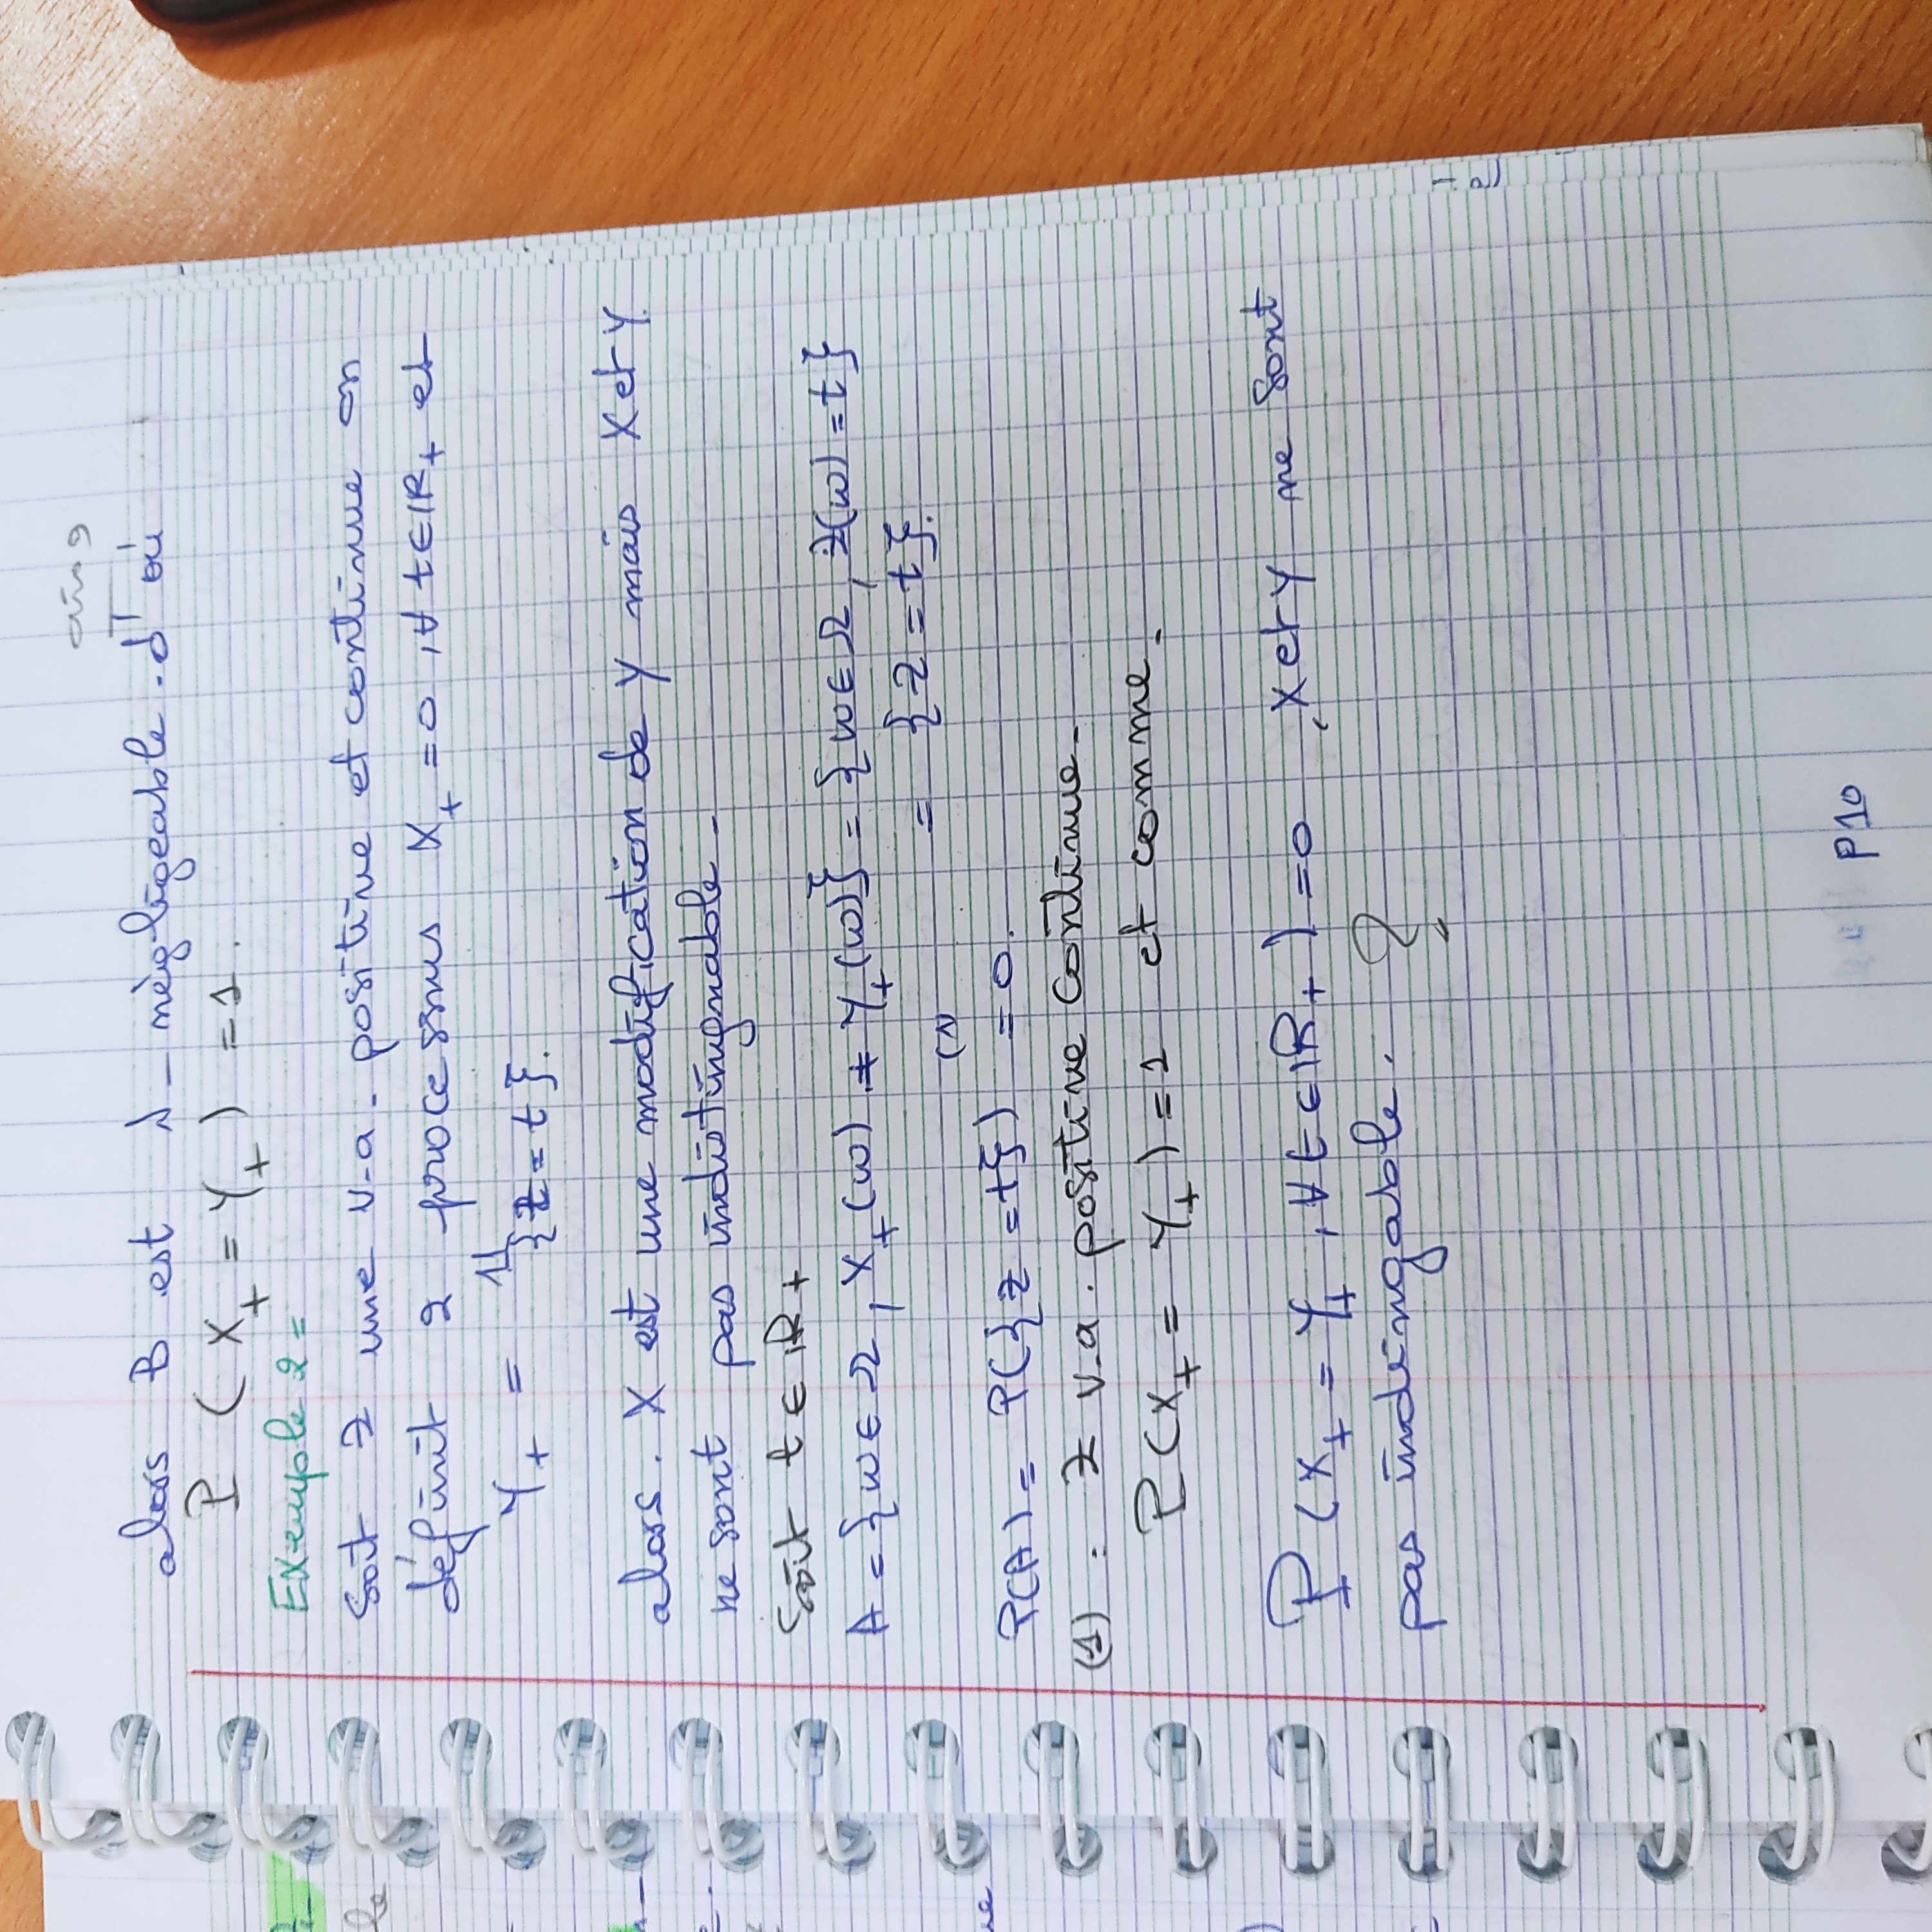 alors B est λ-négligeable. d'où
P (X_t = Y_t) = 1.
Exemple 2 =
Soit Z une v.a. positive et continue on
définit 2 processus X_t = 0, ∀ t ∈ IR+ et
Y_t = 1_{Z = t}.
alors. X est une modification de Y mais X et Y
ne sont pas indistingnable.
Soit t ∈ IR+
A = {w ∈ Ω, X_t(w) ≠ Y_t(w)} = {w ∈ Ω, Z(w) = t}
= {Z = t}.
(1)
P(A) = P({Z = t}) = 0.
(1) : Z v.a. positive continue.
P(X_t = Y_t) = 1 et comme.
P (X_t = Y_t, ∀ t ∈ IR+) = 0, X et Y ne sont
pas indingable. ?
P10